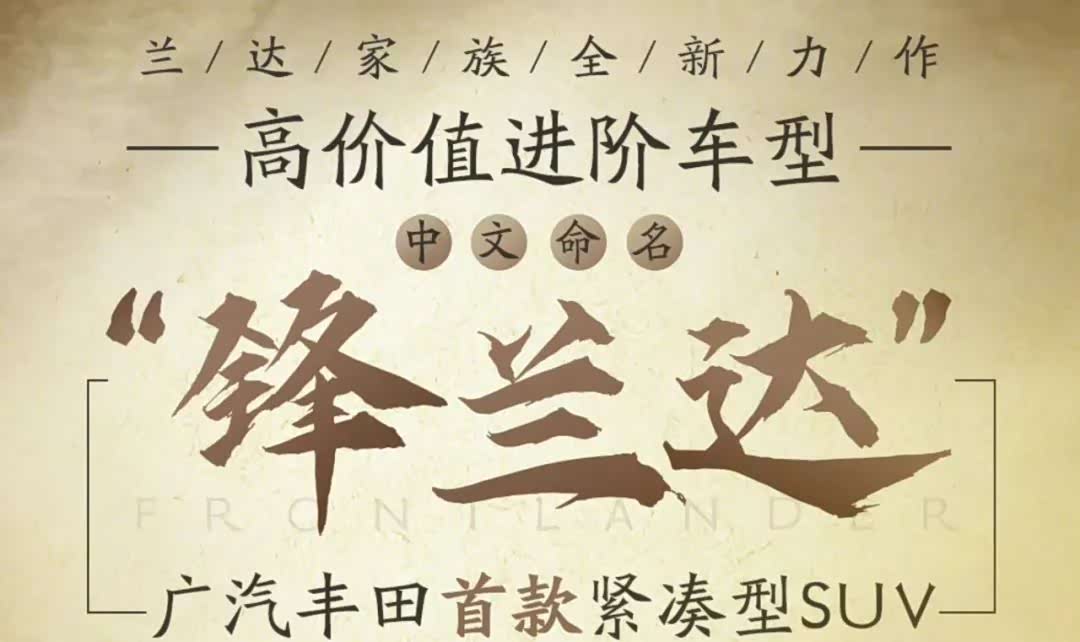 兰/达/家/族/全/新/力/作
高价值进阶车型
中文命名
“锋兰达”
FRONTLANDER
广汽丰田首款紧凑型SUV